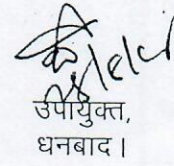 उपायुक्त,
धनबाद।